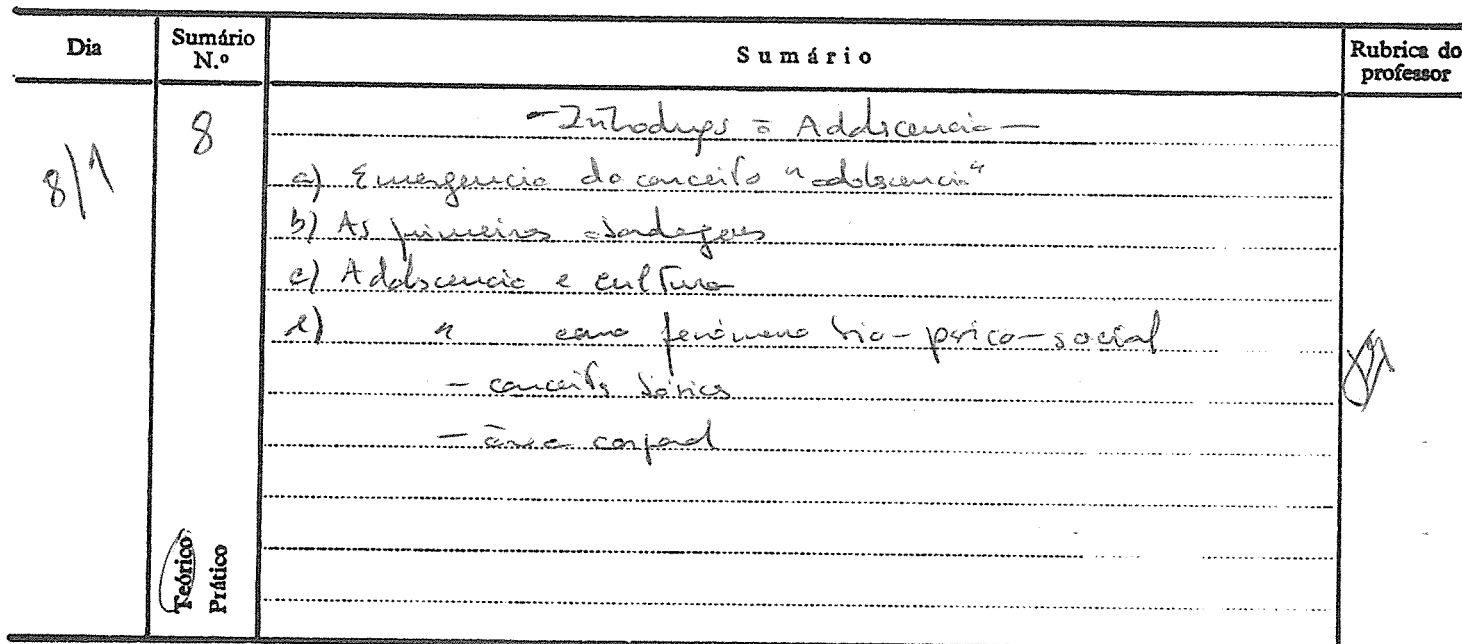 Dia
Sumário N.º
Sumário
Rubrica do professor
8/1
8
- Introdução à Adolescencia -
a) Emergencia do conceito "adolescencia"
b) As primeiras abordagens
c) Adolescencia e cultura
d) " como fenómeno bio-psico-social
- conceitos básicos
- área corporal
Teórico
Prático